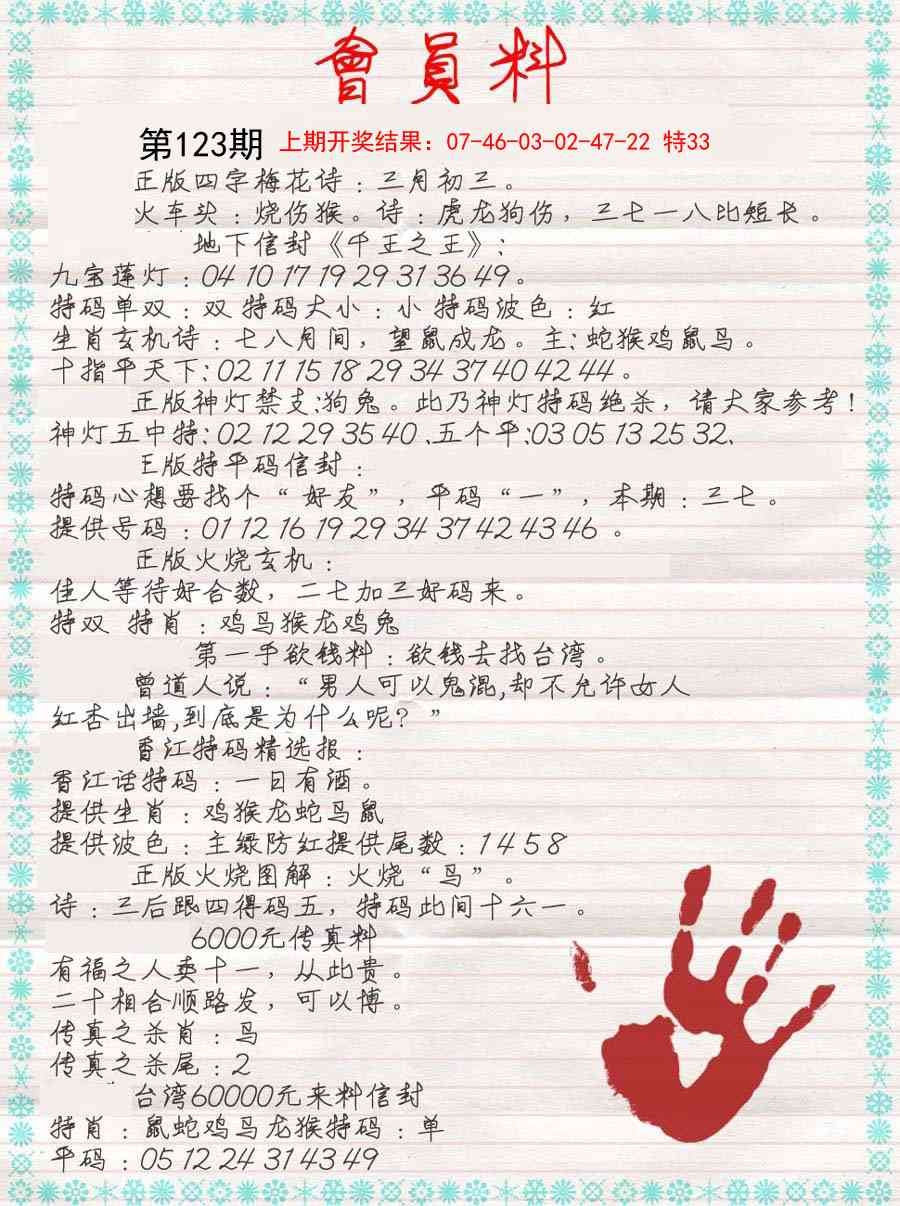 會員料
第123期 上期开奖结果：07-46-03-02-47-22 特33
正版四字梅花诗：三月初三。
火车头：烧伤猴。诗：虎龙狗伤，三七一八比短长。
地下信封《千王之王》：
九宝莲灯：04 10 17 19 29 31 36 49。
特码单双：双 特码大小：小 特码波色：红
生肖玄机诗：七八月间，望鼠成龙。主：蛇猴鸡鼠马。
十指平天下：02 11 15 18 29 34 37 40 42 44。
正版神灯禁支：狗兔。此乃神灯特码绝杀，请大家参考！
神灯五中特：02 12 29 35 40、五个平：03 05 13 25 32、
王版特平码信封：
特码心想要找个“好友”，平码“一”，本期：三七。
提供号码：01 12 16 19 29 34 37 42 43 46 。
正版火烧玄机：
佳人等待好合数，二七加三好码来。
特双 特肖：鸡马猴龙鸡兔
第一手欲钱料：欲钱去找台湾。
曾道人说：“男人可以鬼混，却不允许女人
红杏出墙，到底是为什么呢？”
香江特码精选报：
香江话特码：一日有酒。
提供生肖：鸡猴龙蛇马鼠
提供波色：主绿防红提供尾数：1 4 5 8
正版火烧图解：火烧“鸟”。
诗：三后跟四得码五，特码此间十六一。
6000元传真料
有福之人卖十一，从此贵。
二十相合顺路发，可以博。
传真之杀肖：马
传真之杀尾：2
台湾60000元来料信封
特肖：鼠蛇鸡马龙猴特码：单
平码：05 12 24 31 43 49